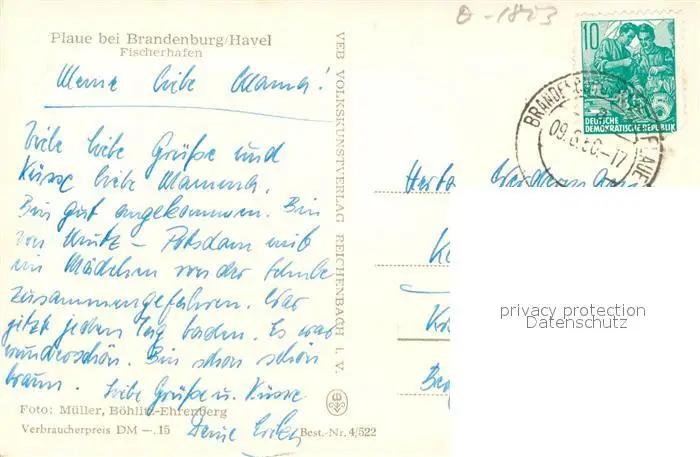 θ-1823
Plaue bei Brandenburg/Havel
Fischerhafen
Meine liebe Mama!
Viele liebe Grüße und
Küsse liebe Mamma.
Bin gut angekommen. Bin
von – Potsdam mit
ein Mädchen von der Schule
zusammengefahren. War
jetzt jeden Tag baden. Es war
wunderschön. Bin schon schön
braun. Liebe Grüße u. Küsse
Deine
Foto: Müller, Böhlitz-Ehrenberg
Verbraucherpreis DM —.15
Best.-Nr. 4/522
VEB VOLKSKUNSTVERLAG REICHENBACH i. V.
10
DEUTSCHE
DEMOKRATISCHE REPUBLIK
5
09.8.60.-17
PLAUE
privacy protection
Datenschutz